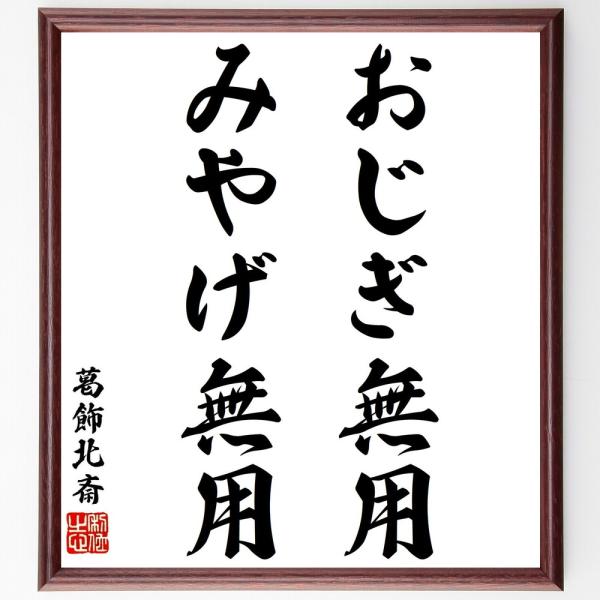 おじぎ無用
みやげ無用
葛飾北斎